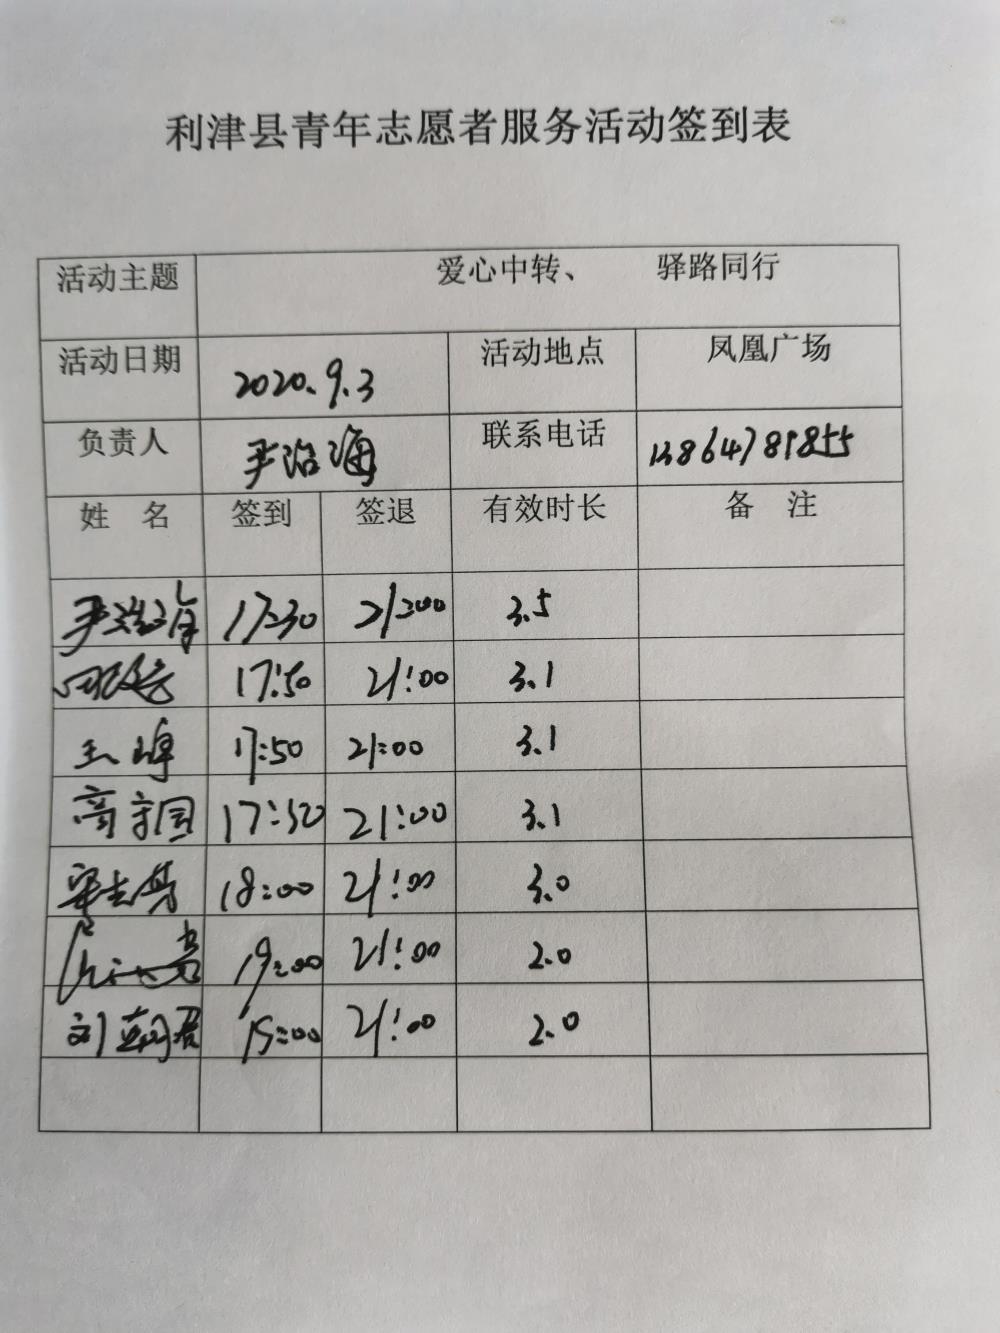 利津县青年志愿者服务活动签到表
活动主题 爱心中转、 驿路同行
活动日期 2020.9.3 活动地点 凤凰广场
负责人 尹治海 联系电话 13864789855
姓 名 签到 签退 有效时长 备 注
尹治海 17:30 21:00 3.5
17:50 21:00 3.1
17:50 21:00 3.1
高守园 17:50 21:00 3.1
18:00 21:00 3.0
19:00 21:00 2.0
刘 21:00 2.0